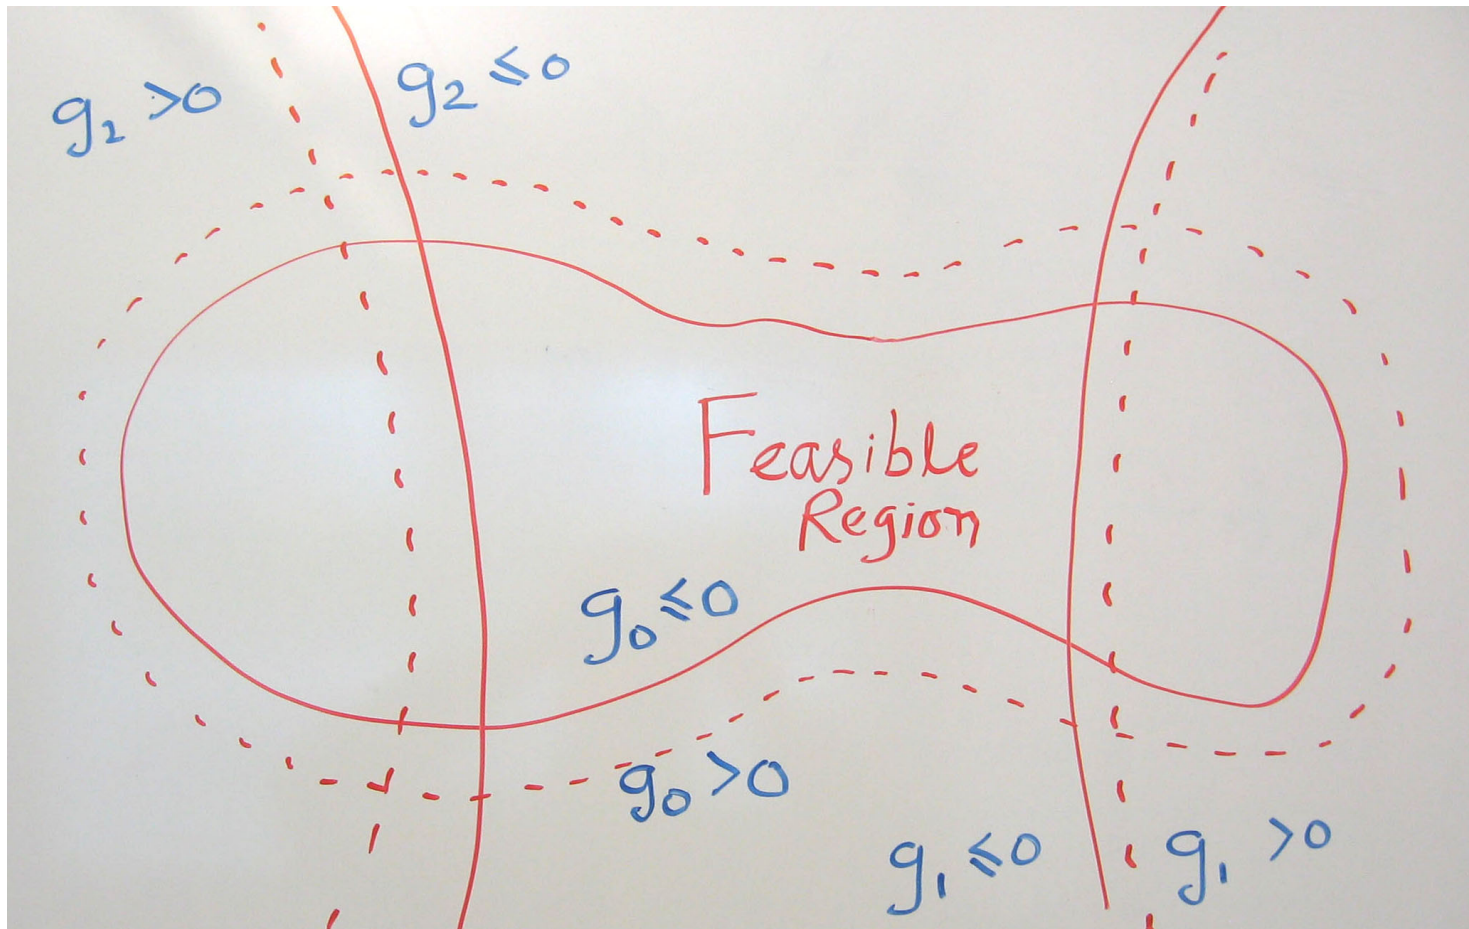 g₂ >0
g₂ ≤0
Feasible
Region
g₀ ≤0
g₀ >0
g₁ ≤0
g₁ >0